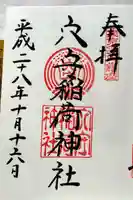 奉拝
穴守稲荷神社
平成二十八年十月十六日